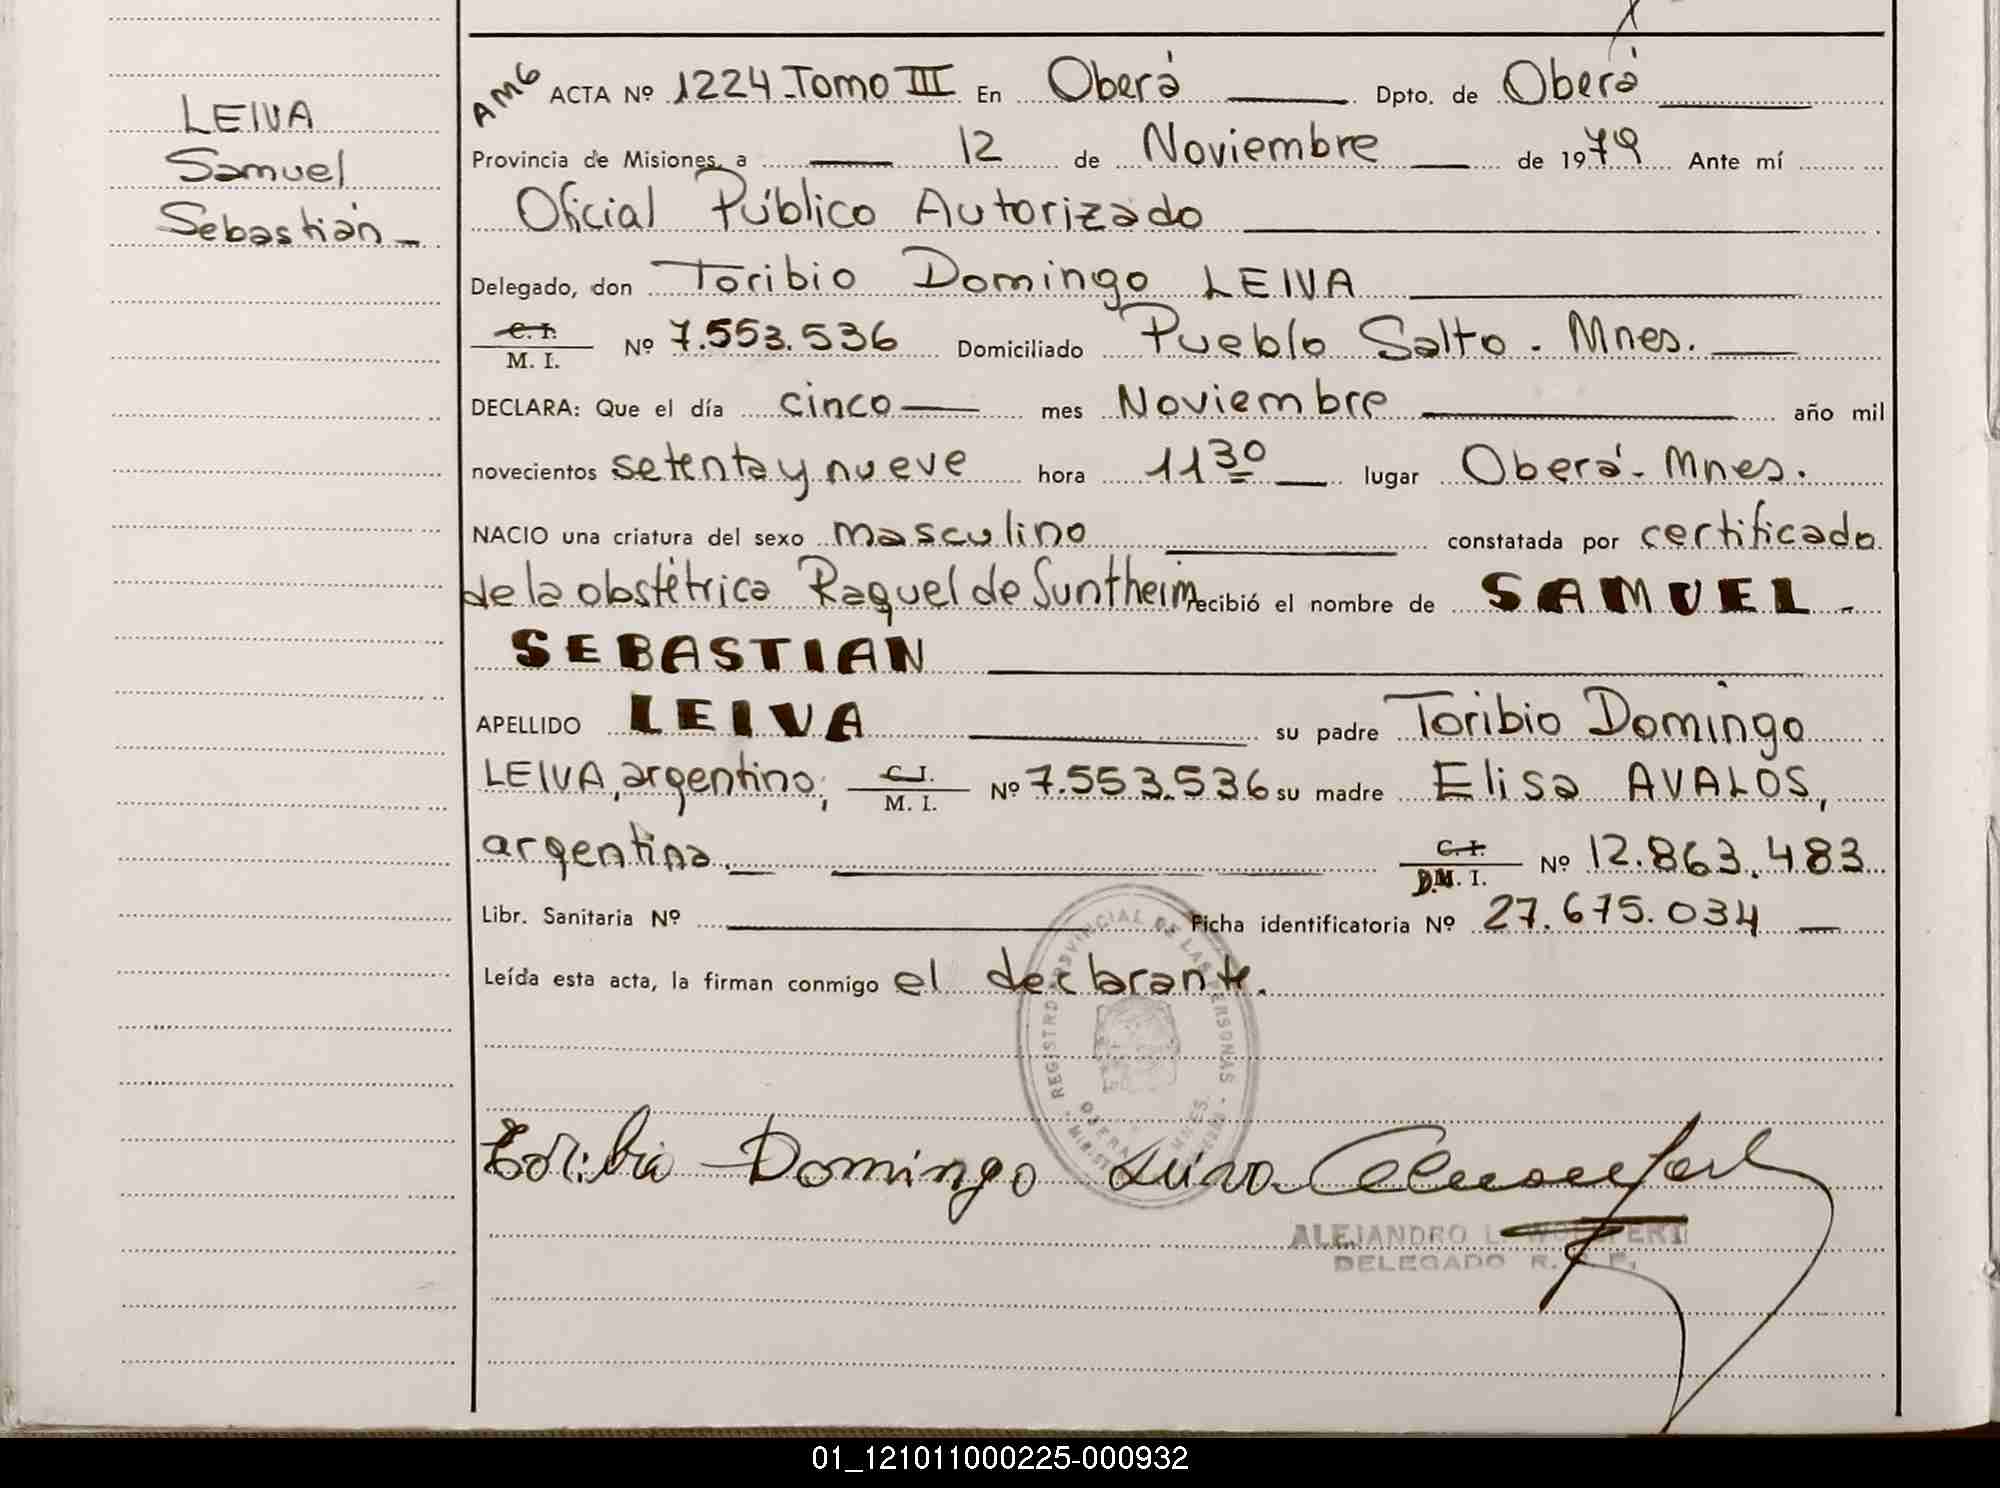 LEIVA
Samuel
Sebastián
AMG ACTA Nº 1224-Tomo III En Oberá Dpto. de Oberá
Provincia de Misiones, a 12 de Noviembre de 1979 Ante mí
Oficial Público Autorizado
Delegado, don Toribio Domingo LEIVA
C. I. M. I. Nº 7.553.536 Domiciliado Pueblo Salto - Mnes.
DECLARA: Que el día cinco mes Noviembre año mil
novecientos setenta y nueve hora 11 30 lugar Oberá - Mnes.
NACIO una criatura del sexo masculino constatada por certificado
de la obstétrica Raquel de Suntheim recibió el nombre de SAMUEL -
SEBASTIAN
APELLIDO LEIVA su padre Toribio Domingo
LEIVA, argentino; C. I. M. I. Nº 7.553.536 su madre Elisa AVALOS,
argentina. C. I. D.N. I. Nº 12.863.483
Libr. Sanitaria Nº Ficha identificatoria Nº 27.675.034
Leída esta acta, la firman conmigo el declarante.
REGISTRO PROVINCIAL DE LAS PERSONAS
OBERA MNES.
Toribio Domingo Leiva
ALEJANDRO L.
DELEGADO R.
01_121011000225-000932